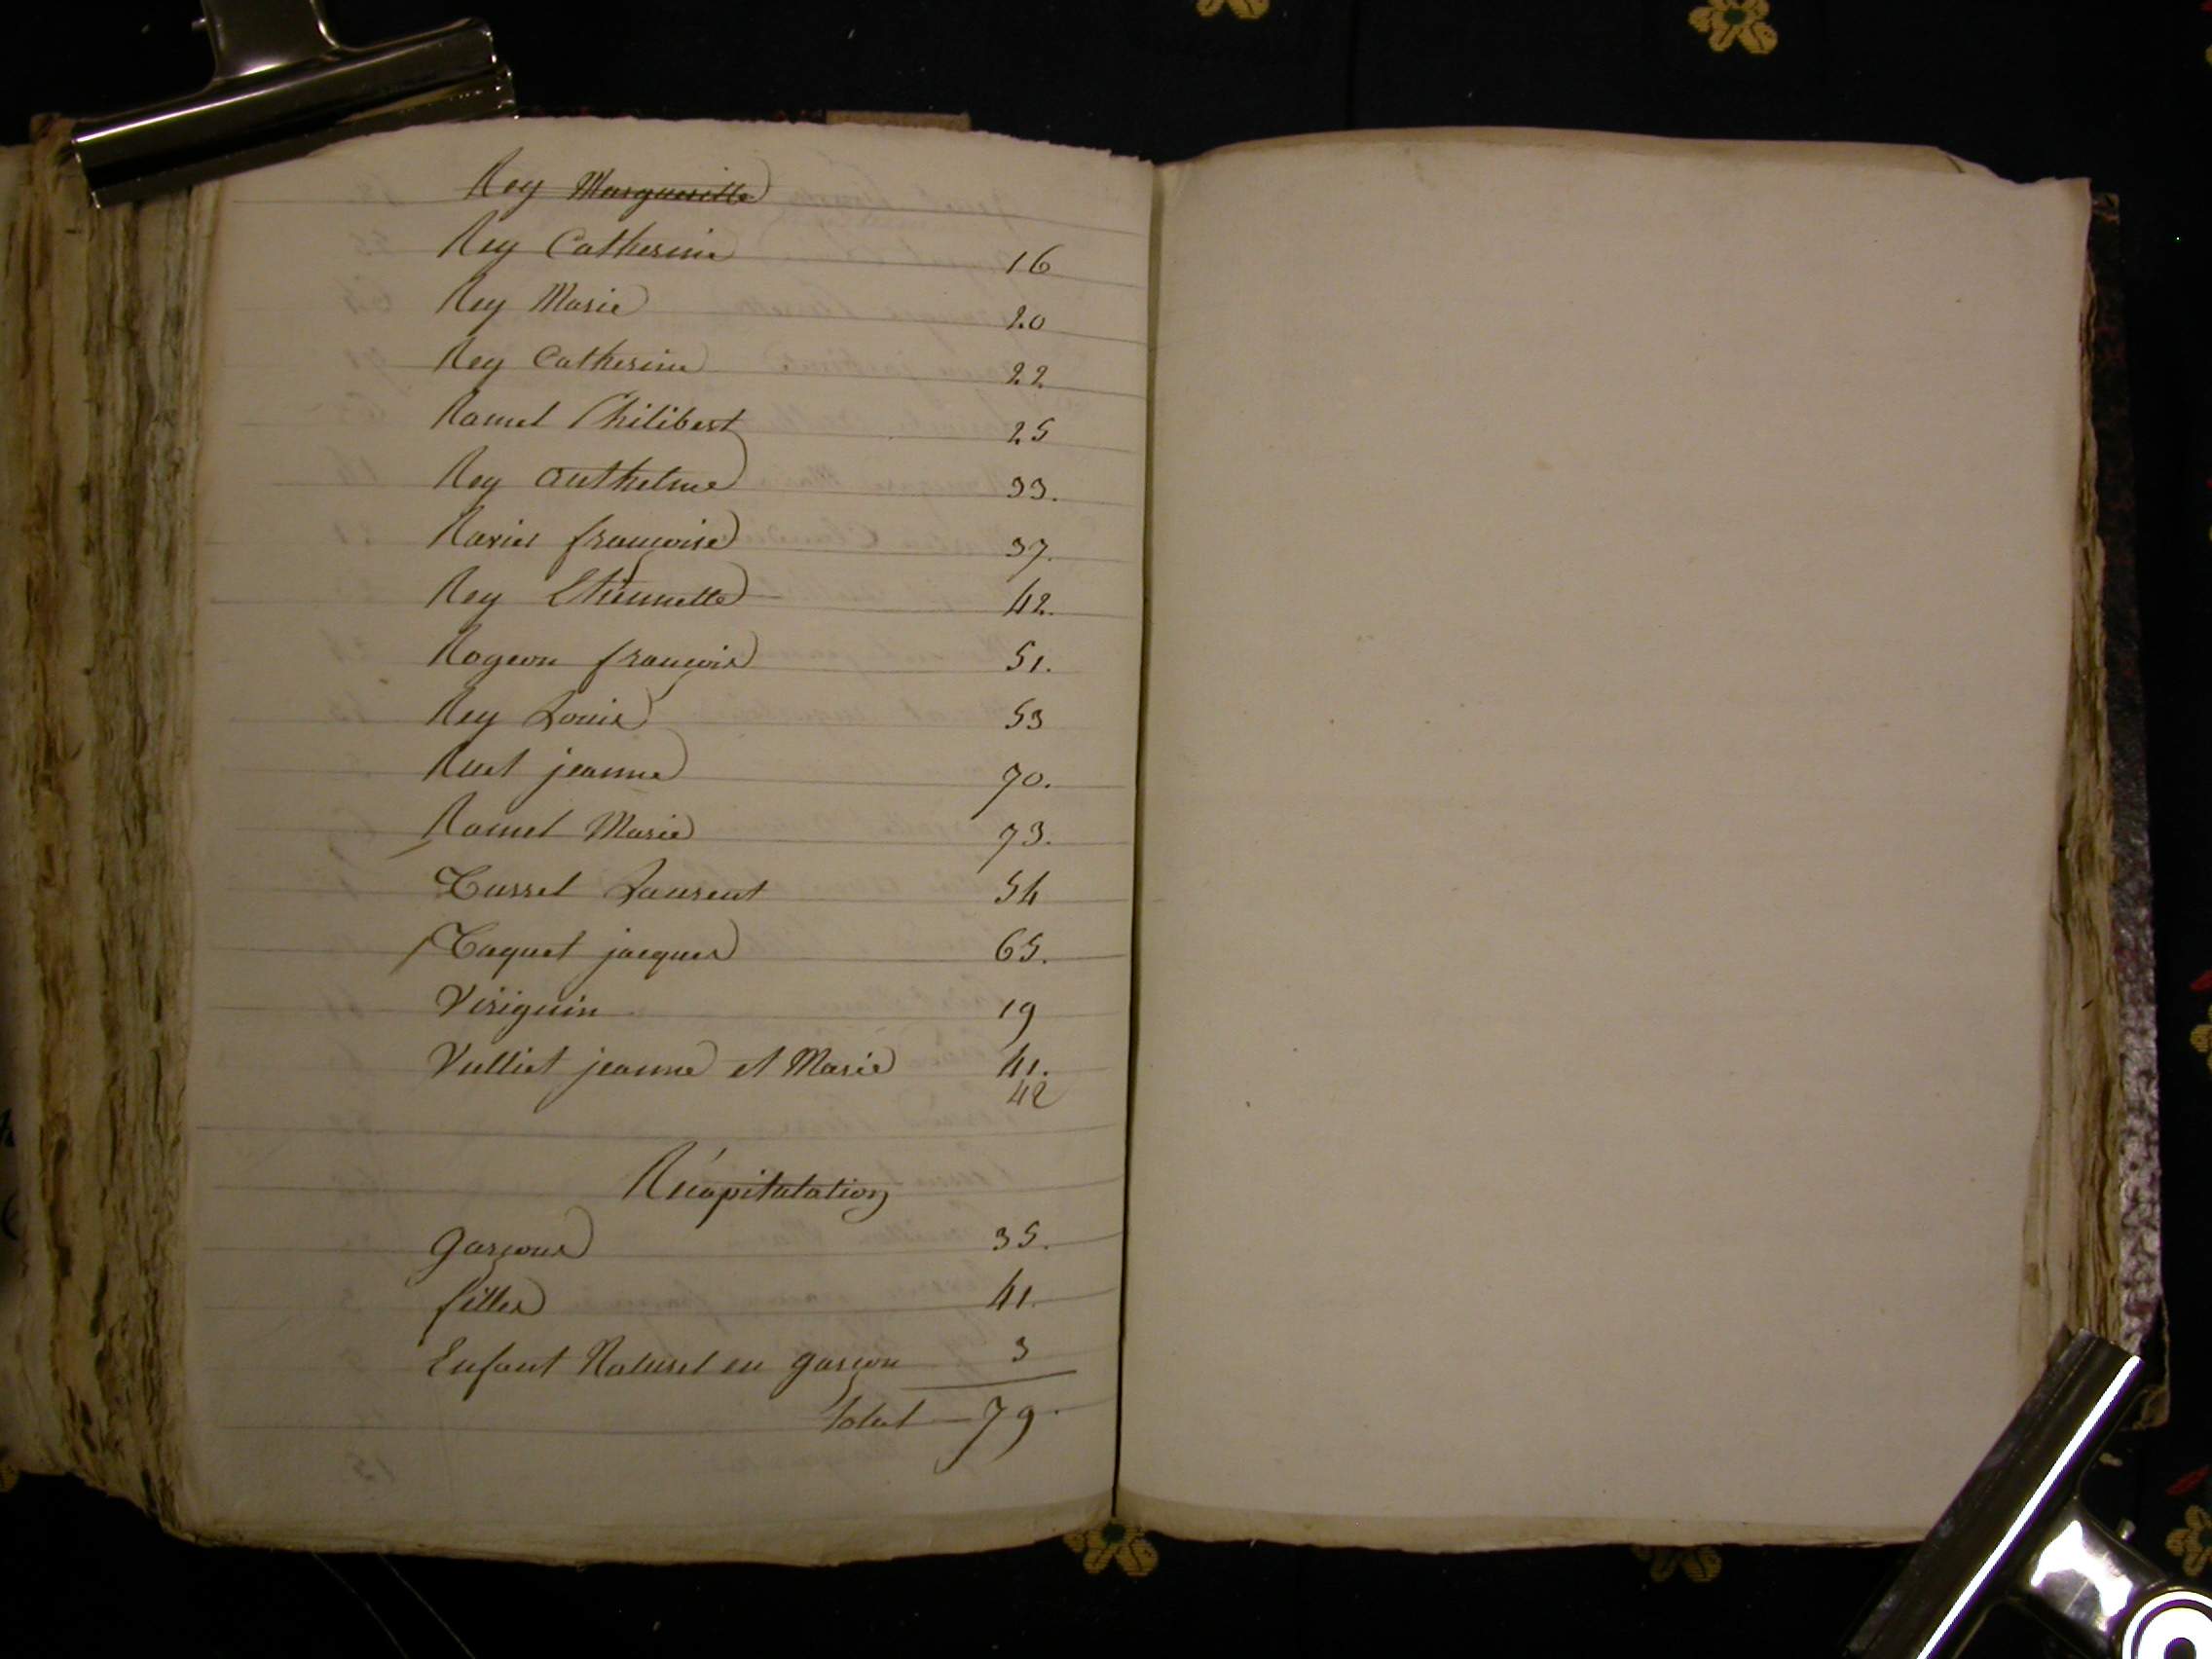 Rey Margueritte
Rey Catherine 16
Rey Marie 20
Rey Catherine 22
Ramel Philibert 25
Rey Anthelme 33.
Ravier françoise 37.
Rey Etiennette 42.
Rogeon françois 51.
Rey Louis 53
Ruet jeanne 70.
Ramel Marie 73.
Tussel Laurent 54
Taquet jacques 65.
Viriguin 19
Vulliet jeanne et Marie 41.
42
Récapitulation
garçons 35.
filles 41.
Enfant Naturel en garçon 3
total 79.